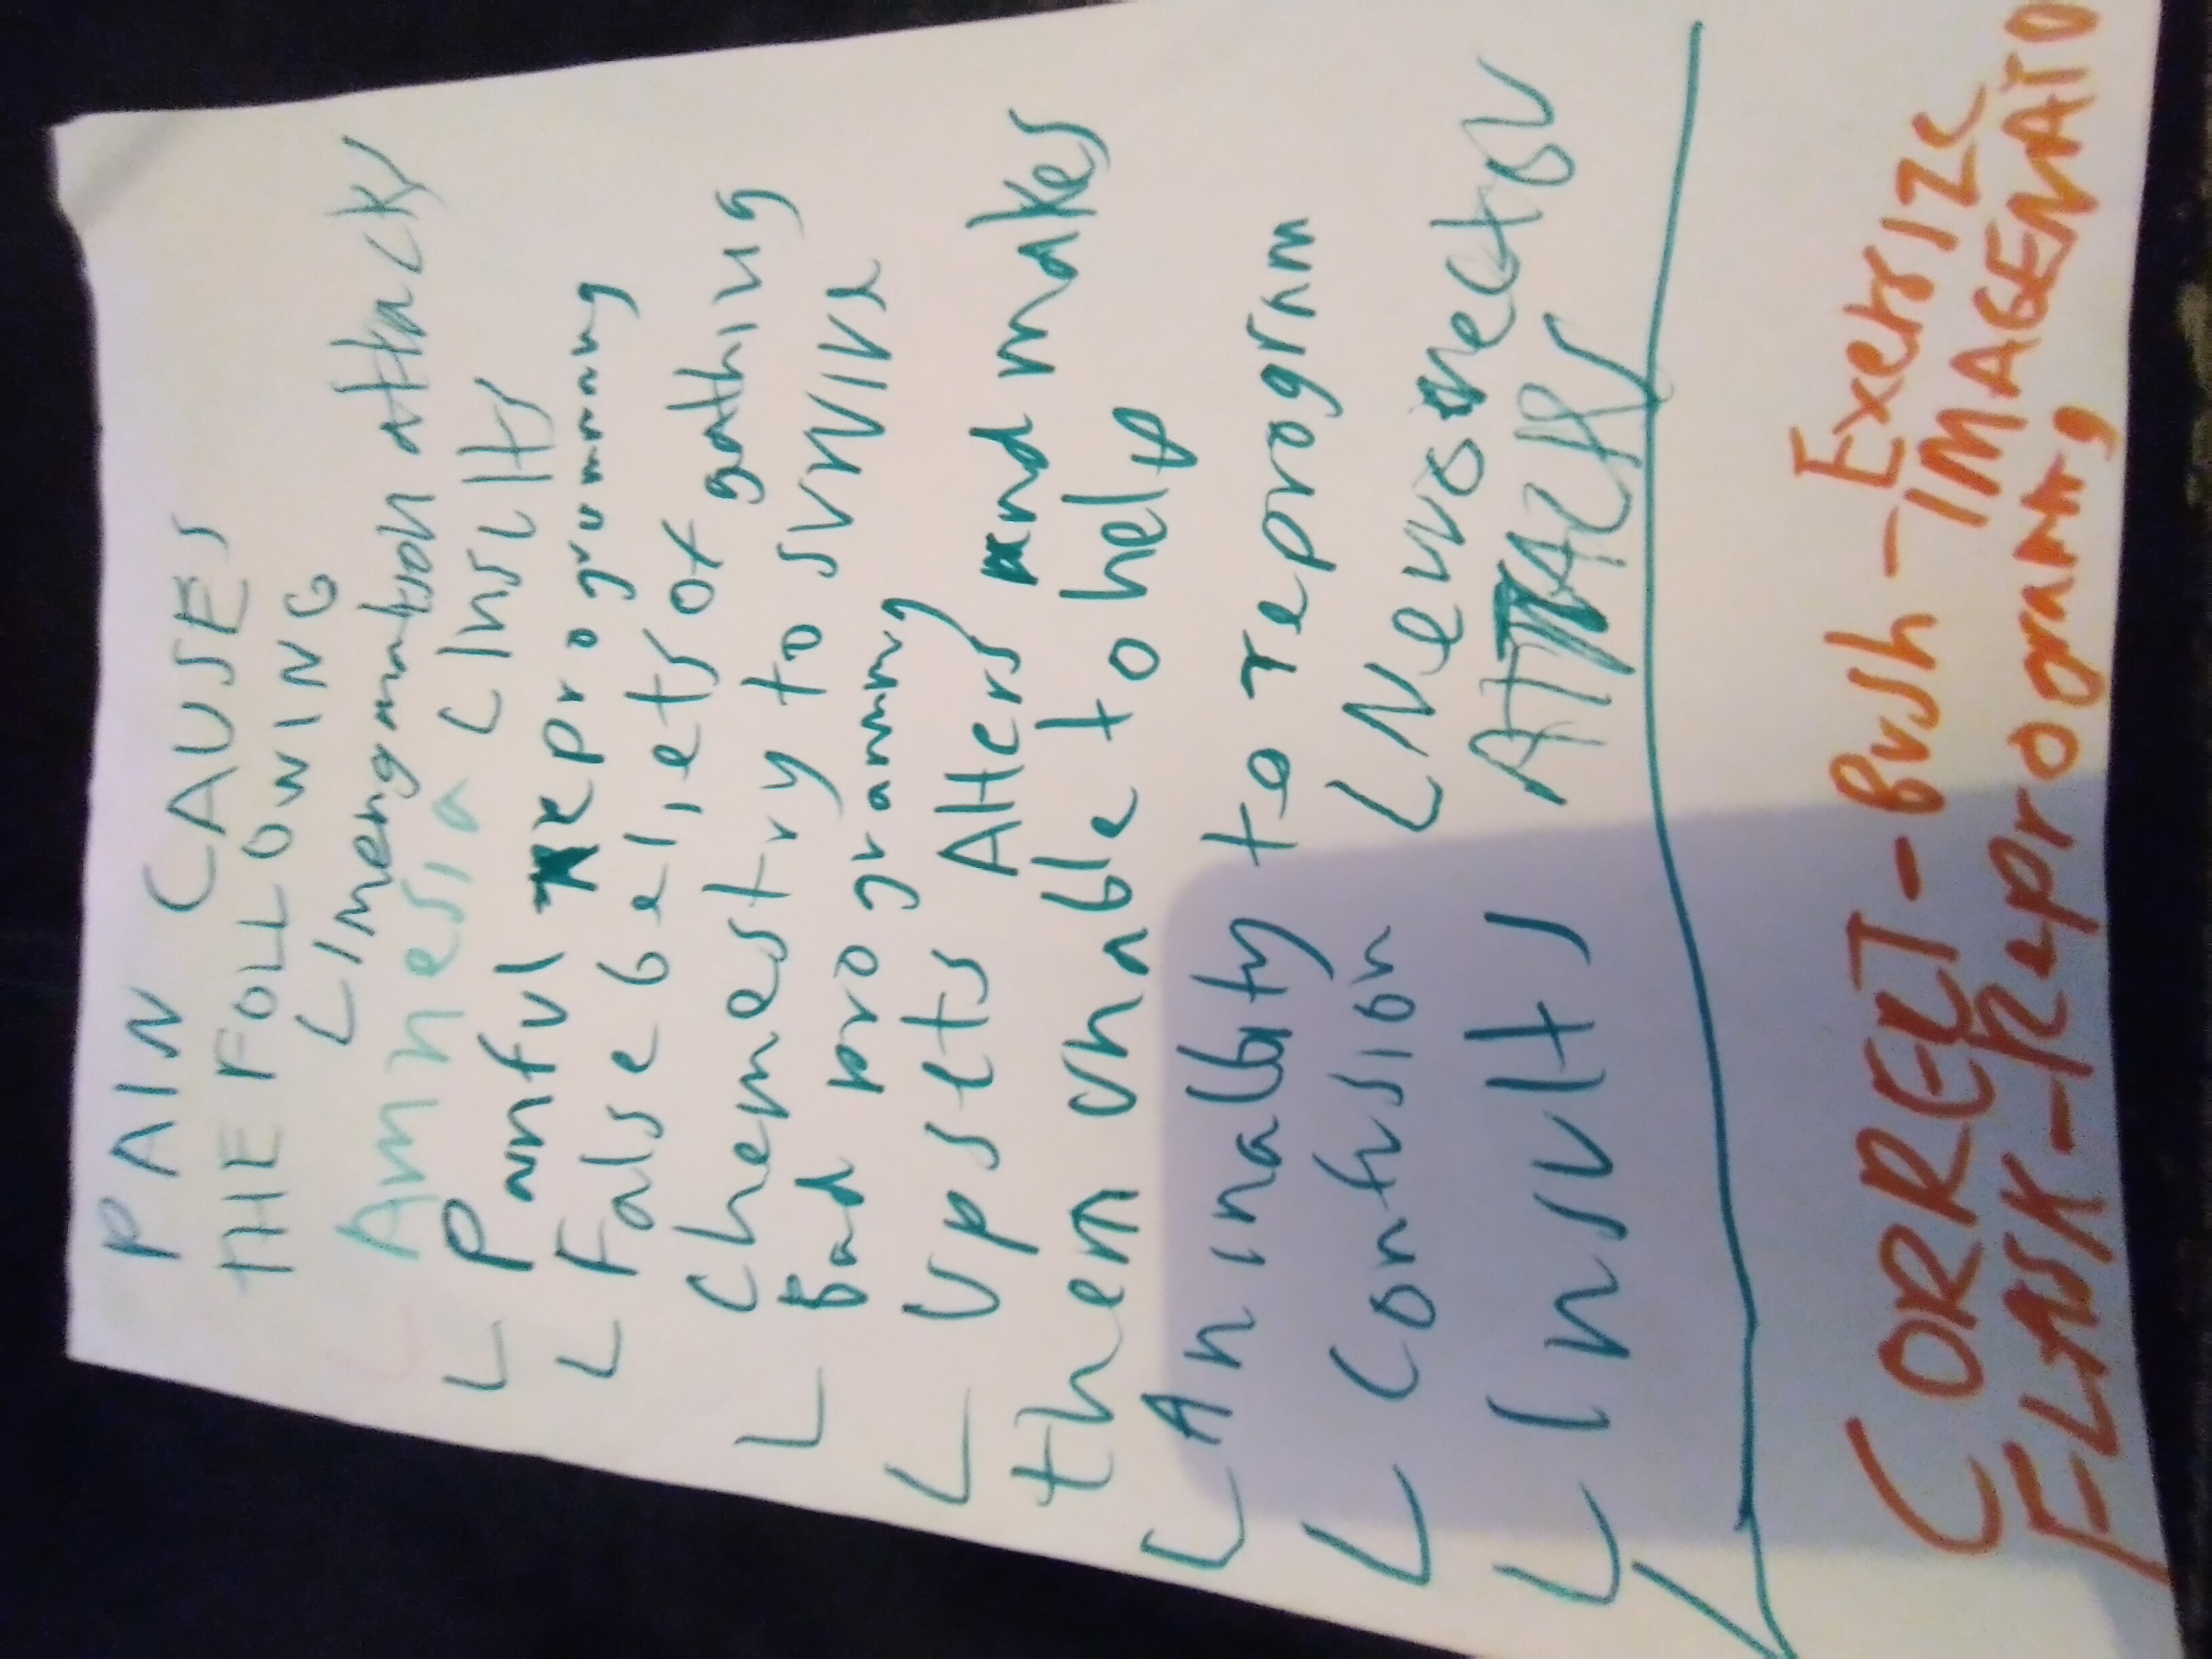 PAIN CAUSES
THE FOLLOWING
L Imengammation attacks
Amnesia L Insults
L Painful reprogramming
L False beliefs of
Chemestry gathing
L Bad to survive
programming
L Upsets Alters and makes
them unable to help
L An inability to reprogrm
L Confusion L Nensorector
L Insults ATTACKS
CORRECT - Bush - Exersize
FLASK - Ruprogramm, IMAGENATO